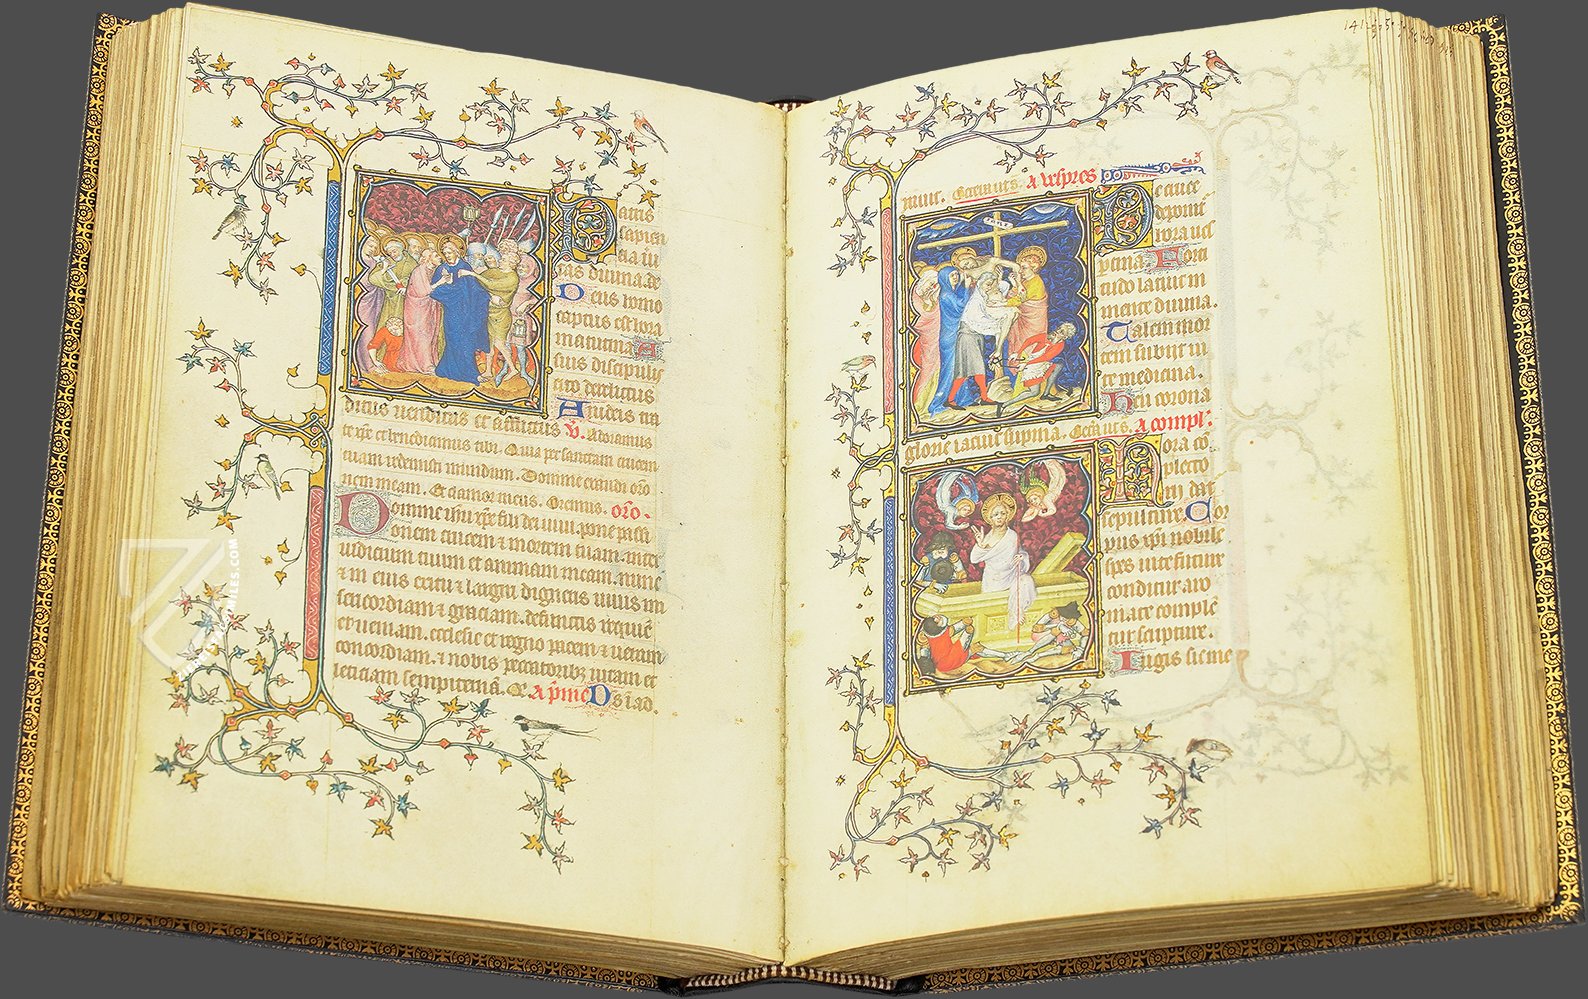 Patris
sapien
tia ve
ritas divina. de
Deus homo
captus est hora
matutina. A
suis discipulis
cito derelictus
A iudeis tra
ditus venditus et afflictus V. Adoramus
te xpe et benedicimus tibi. Quia per sanctam crucem
tuam redemisti mundum. Domine exaudi oro
nem meam. Et clamor meus. Oremus. oro.
Domine ihu xpe fili dei vivi. pone passi
onem crucem et mortem tuam. inter
iudicium tuum et animam meam. nunc
et in
et largiri digneris vivis mi
sericordiam et graciam. defunctis requie
ecclesie et regno pacem et veram
concordiam. et nobis peccatoribus vitam et
leticiam sempiternam. Ad prime Ds i ad.
141
Oremus. A vespres
De cruce
deponit
hora ves
pertina. Forti
tudo latuit in
mente divina.
Talem mor
tem subiit vi
te medicina.
Heu corona
glorie iacuit supina. Oremus. A compl.
Hora co
pletorii
dat
sepulture. Cor
pus xpi nobile
spes vite future
conditur aro
mate comple
tur scripture.
Iugis sit me